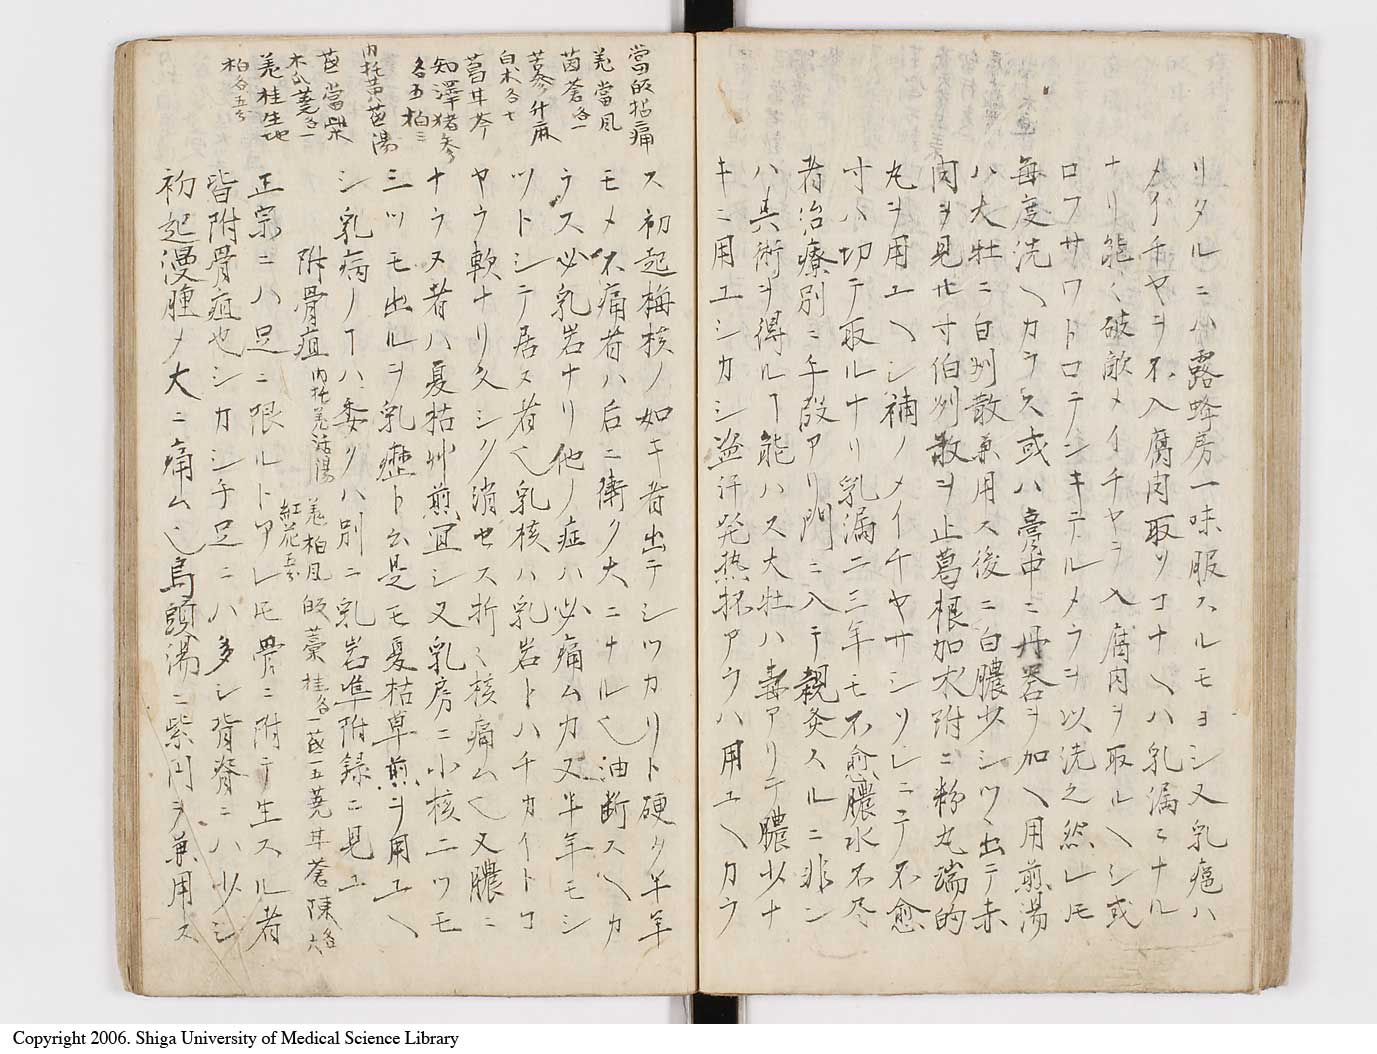 リタルニハ露蜂房一味服スルモヨシ又乳癌ハ
メイチヤヲ不入腐肉取ツコナヘハ乳漏ニナル
ナリ能く破敵メイチヤヲ入腐肉ヲ取ルヘシ或
ロワサワトロテンキテルメラヲ以洗之然レモ
毎度洗ヘカラス或ハ膏中ニ丹砮ヲ加ヘ用煎湯
ハ大牡ニ白州散兼用ス後ニ白膿少シツヽ出テ赤
肉ヲ見セ寸伯州散ヲ止葛根加朮附ニ粉丸端的
丸ヲ用ユヘシ補ノメイチヤサシツレニテ不愈
寸ハ切テ取ルナリ乳漏二三年モ不愈膿水不尽
者治療別ニ手段アリ門ニ入テ親灸スルニ非ン
ハ其術ヲ得ルヿ能ハス大牡ハ毒アリテ膿少ナ
キニ用ユシカシ盗汗発熱抔アラハ用ユヘカラ
ス初起梅核ノ如キ者出テシツカリト硬ク半年
モメ不痛者ハ后ニ衝ク大ニナル也油断スヘカ
ラス必乳岩ナリ他ノ症ハ必痛ムカ又半年モシ
ツトシテ居ス者也乳核ハ乳岩トハチカイトコ
ヤラ軟ナリ久シク消セス折々核痛ム也又膿ニ
ナラヌ者ハ夏枯艸煎宜シ又乳房ニ小核二ツモ
三ツモ出ルヲ乳癧ト云是モ夏枯草煎ヲ用ユヘ
シ乳病ノヿハ委クハ別ニ乳岩準附録ニ見ユ
附骨疽
内托羌活湯
羌柏風
皈藁
桂各一芪一五蕘甘蒼陳各六
紅花五分
正宗ニハ足ニ限ルトアレモ骨ニ附テ生スル者
皆附骨疽也シカシ手足ニハ多シ背脊ニハ少シ
初起漫腫メ大ニ痛ム也烏頭湯ニ紫円ヲ兼用ス
當皈拈痛
羌當風
茵蒼各一
苦參升麻
白朮各七
葛甘芩
知澤猪参
各五柏三
内托黄芪湯
芪當柴
木瓜蕘各一
羌桂生地
柏各五分
Copyright 2006. Shiga University of Medical Science Library